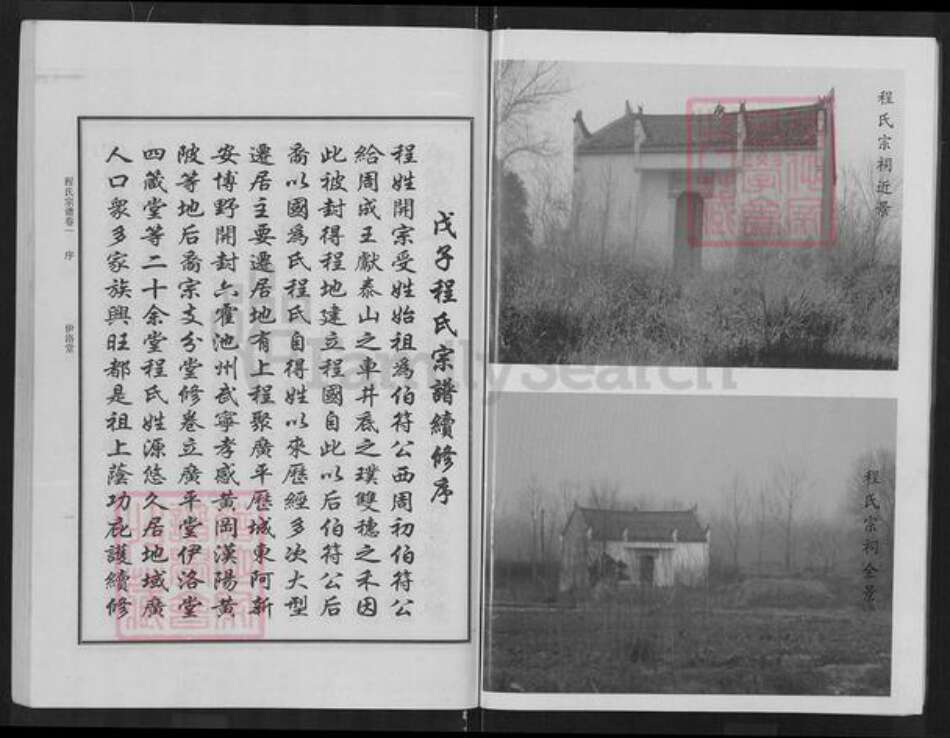 戊子程氏宗譜續修序
程姓開宗受姓始祖為伯符公西周初伯符公
給周成王獻泰山之車井底之璞雙穗之禾因
此被封得程地建立程國自此以后伯符公后
裔以國為氏程氏自得姓以來歷經多次大型
遷居主要遷居地有上程聚廣平歷城東阿新
安博野開封六霍池州武寧孝感黃岡漢陽黃
陂等地后裔宗支分堂修卷立廣平堂伊洛堂
四藏堂等二十余堂程氏姓源悠久居地域廣
人口衆多家族興旺都是祖上蔭功庇護續修
程氏宗谱卷一 序
伊洛堂
一
程氏宗祠近景
程氏宗祠全景
FamilySearch